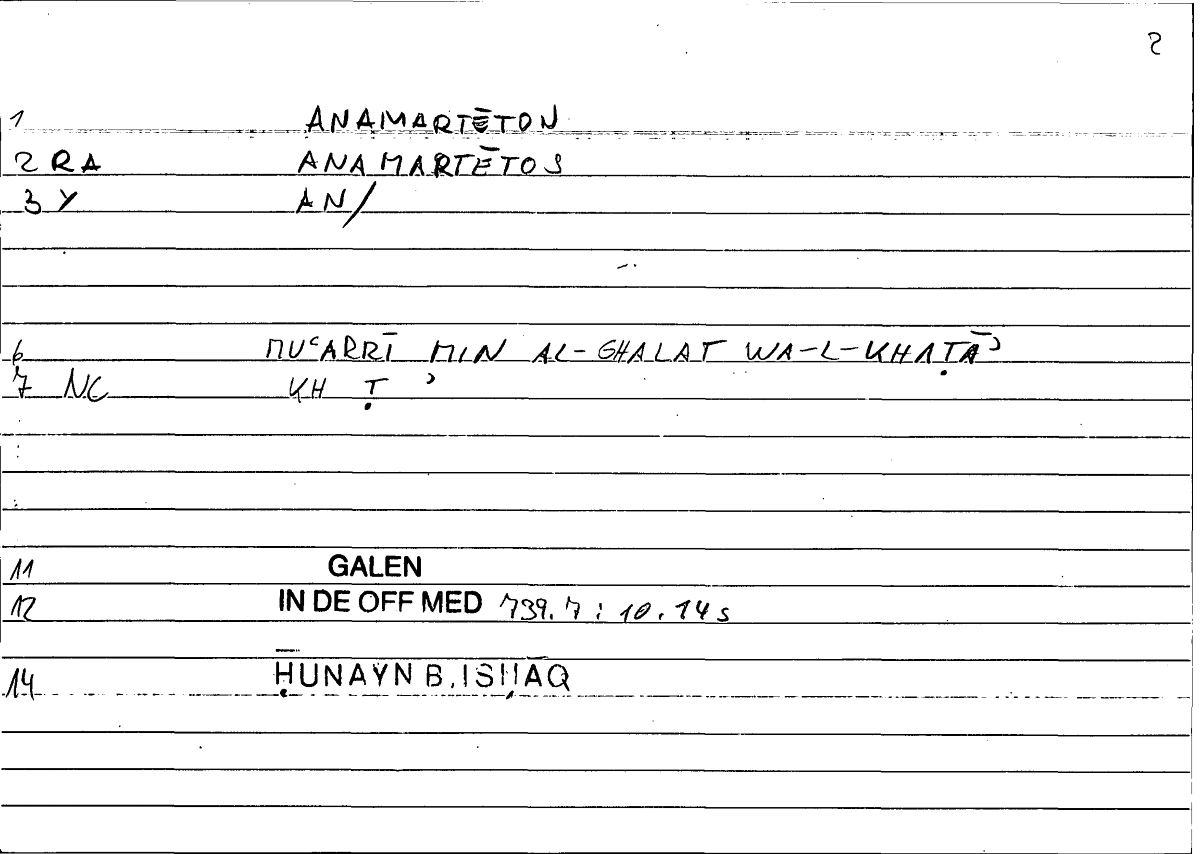 2
1 ANAMARTĒTON
2 RA ANAMARTĒTOS
3 Y AN/
6 MUʿARRĪ MIN AL-GHALAT WA-L-KHAṬĀʾ
7 NC KH Ṭ ʾ
11 GALEN
12 IN DE OFF MED 739.7 : 10.14s
14 ḤUNAYN B. ISḤĀQ